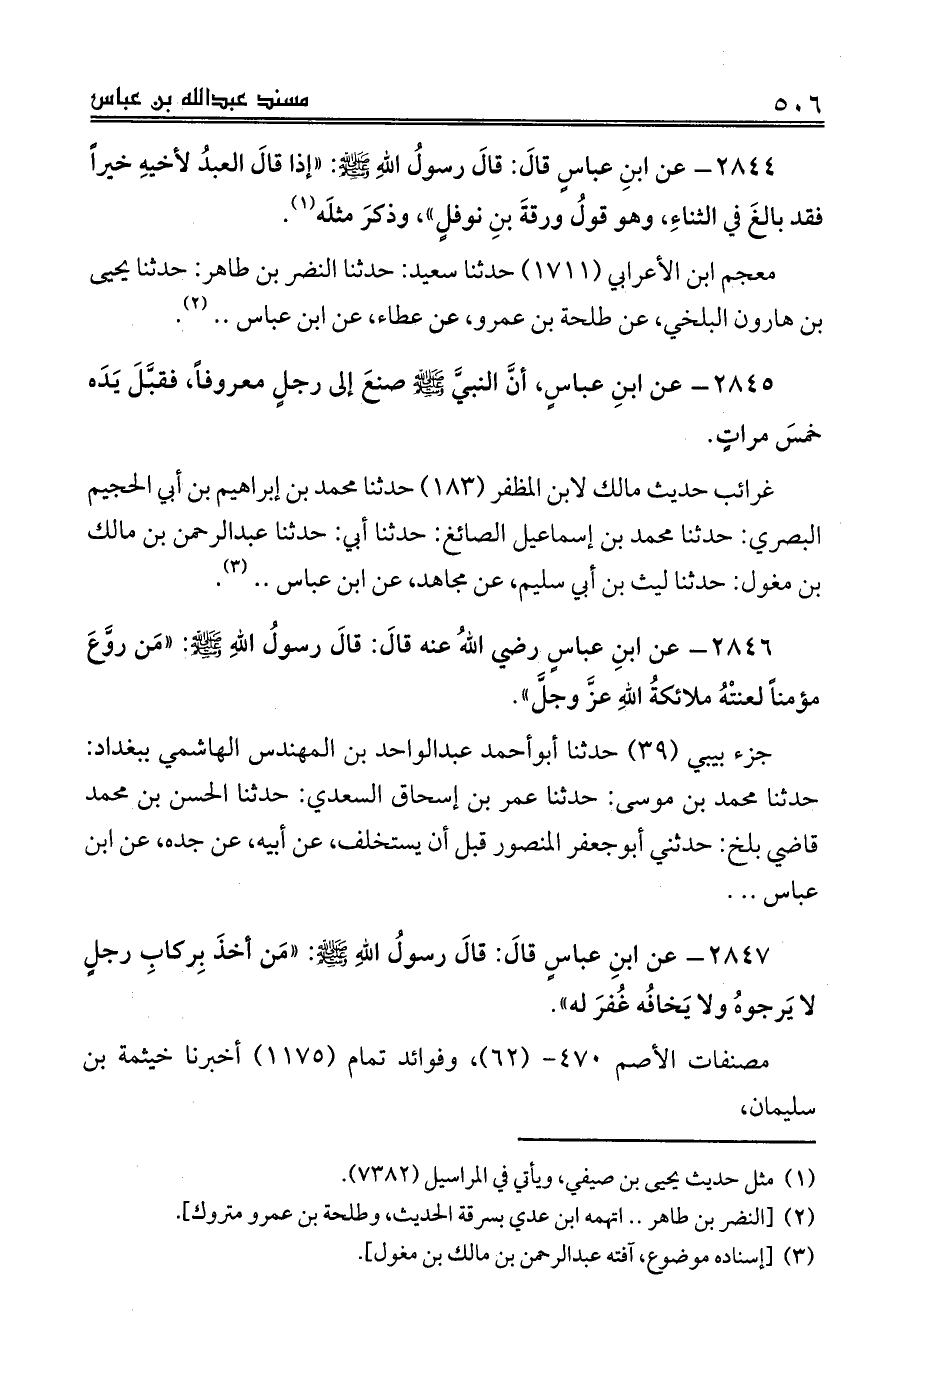 ٥٠٦ مسند عبدالله بن عباس
٢٨٤٤ – عن ابنِ عباسٍ قالَ: قالَ رسولُ اللهِ ﷺ: «إذا قالَ العبدُ لأخيهِ خيراً
فقد بالغَ في الثناءِ، وهو قولُ ورقةَ بنِ نوفلٍ»، وذكرَ مثلَه(١).
معجم ابن الأعرابي (١٧١١) حدثنا سعيد: حدثنا النضر بن طاهر: حدثنا يحيى
بن هارون البلخي، عن طلحة بن عمرو، عن عطاء، عن ابن عباس .. (٢).
٢٨٤٥ – عن ابنِ عباسٍ، أنَّ النبيَّ ﷺ صنعَ إلى رجلٍ معروفاً، فقبَّلَ يَدَه
خمسَ مراتٍ.
غرائب حديث مالك لابن المظفر (١٨٣) حدثنا محمد بن إبراهيم بن أبي الحجيم
البصري: حدثنا محمد بن إسماعيل الصائغ: حدثنا أبي: حدثنا عبدالرحمن بن مالك
بن مغول: حدثنا ليث بن أبي سليم، عن مجاهد، عن ابن عباس .. (٣).
٢٨٤٦ – عن ابنِ عباسٍ رضي اللهُ عنه قالَ: قالَ رسولُ اللهِ ﷺ: «مَن روَّعَ
مؤمناً لعنتْهُ ملائكةُ اللهِ عزَّ وجلَّ».
جزء بيبي (٣٩) حدثنا أبوأحمد عبدالواحد بن المهندس الهاشمي ببغداد:
حدثنا محمد بن موسى: حدثنا عمر بن إسحاق السعدي: حدثنا الحسن بن محمد
قاضي بلخ: حدثني أبوجعفر المنصور قبل أن يستخلف، عن أبيه، عن جده، عن ابن
عباس ...
٢٨٤٧ – عن ابنِ عباسٍ قالَ: قالَ رسولُ اللهِ ﷺ: «مَن أخذَ بِركابِ رجلٍ
لا يَرجوهُ ولا يَخافُه غُفرَ له».
مصنفات الأصم ٤٧٠- (٦٢)، وفوائد تمام (١١٧٥) أخبرنا خيثمة بن
سليمان،
(١) مثل حديث يحيى بن صيفي، ويأتي في المراسيل (٧٣٨٢).
(٢) [النضر بن طاهر .. اتهمه ابن عدي بسرقة الحديث، وطلحة بن عمرو متروك].
(٣) [إسناده موضوع، آفته عبدالرحمن بن مالك بن مغول].